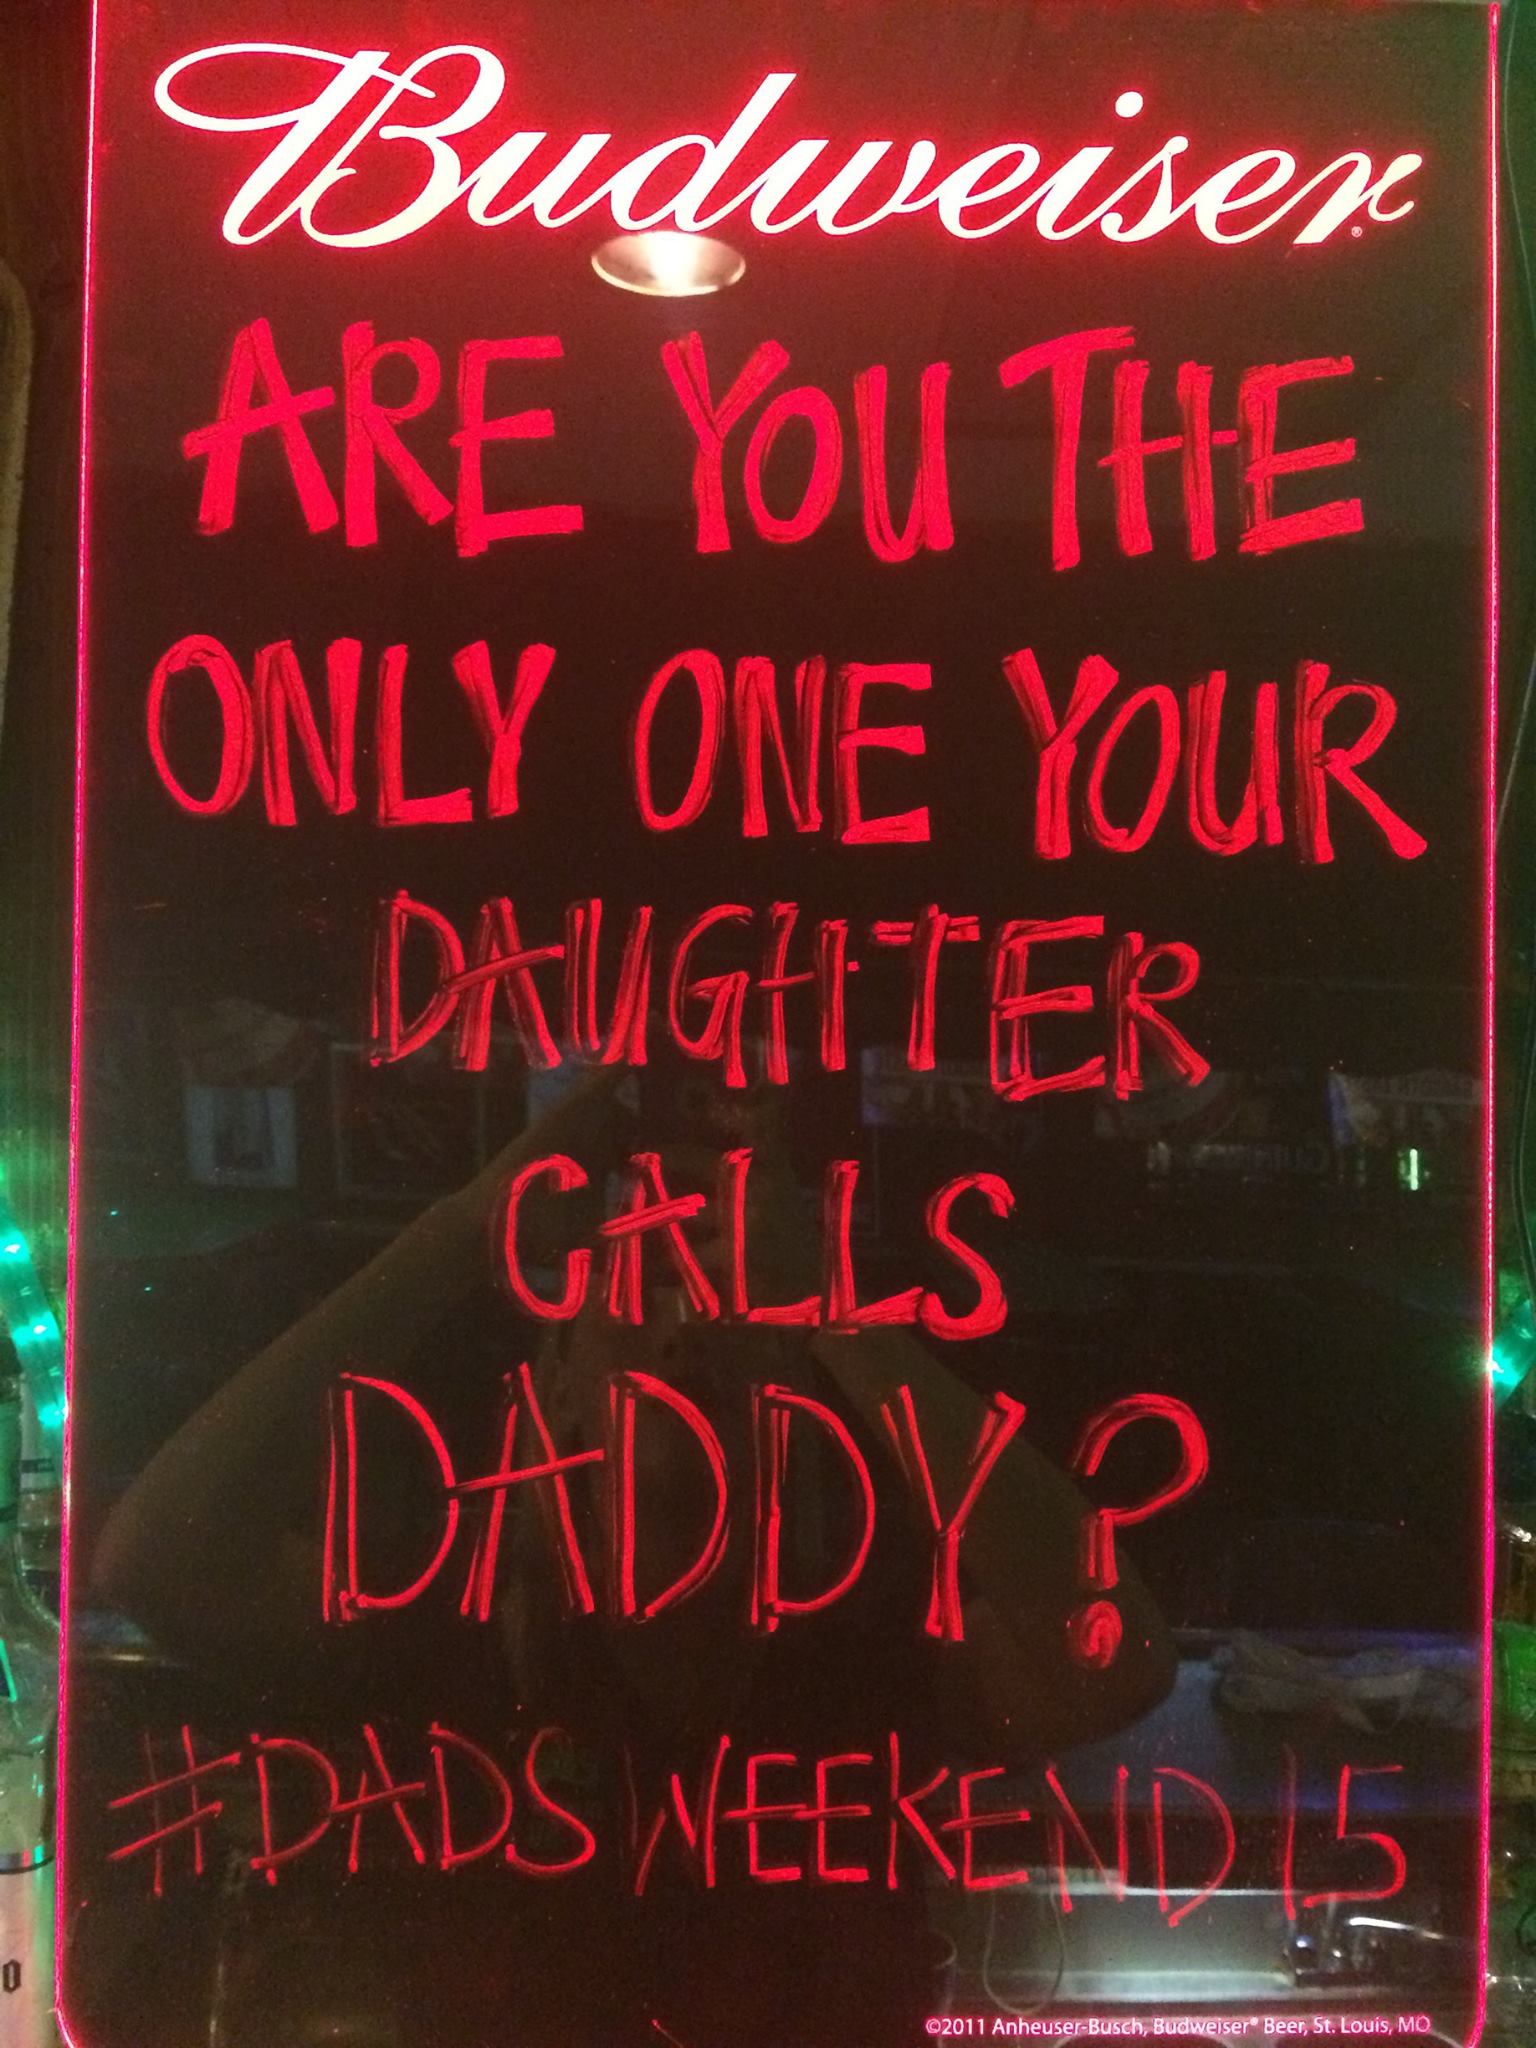 Budweiser®
ARE YOU THE
ONLY ONE YOUR
DAUGHTER
CALLS
DADDY?
#DADSWEEKEND15
©2011 Anheuser-Busch, Budweiser® Beer, St. Louis, MO